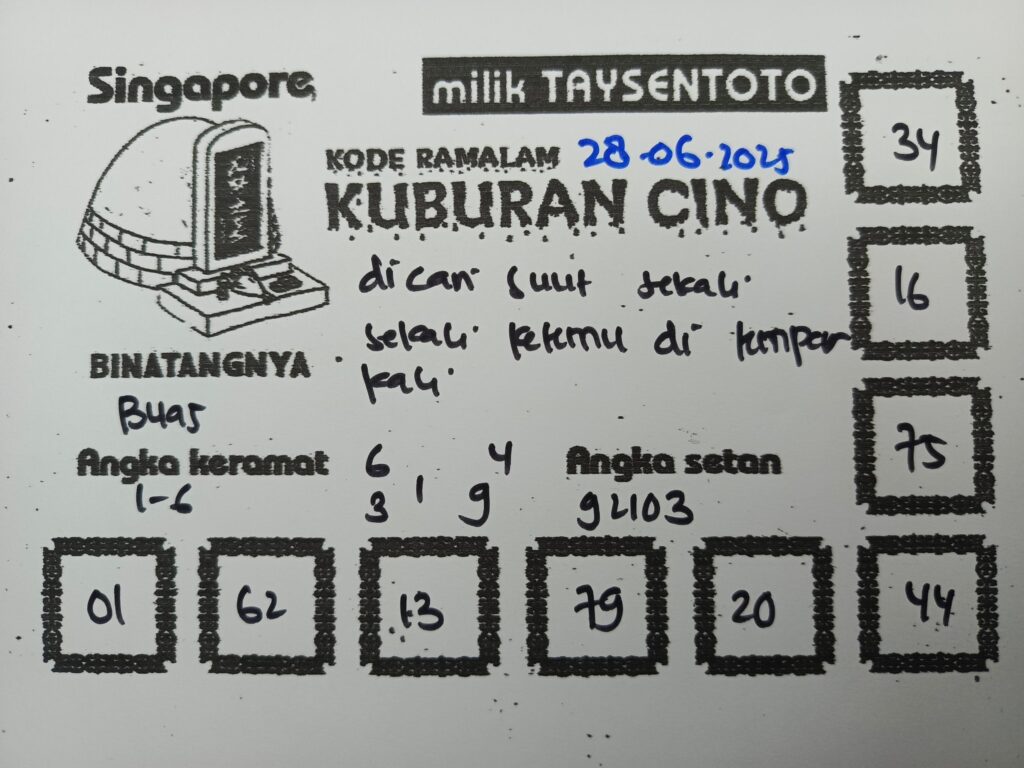 Singapore
milik TAYSENTOTO
KODE RAMALAM 28-06-2025
KUBURAN CINO
dicari sulit sekali
sekali ketemu di tempat
kali
BINATANGNYA
Buas
Angka keramat
1-6
6 4
3 1 9
Angka setan
92103
34
16
75
01 62 13 79 20 44